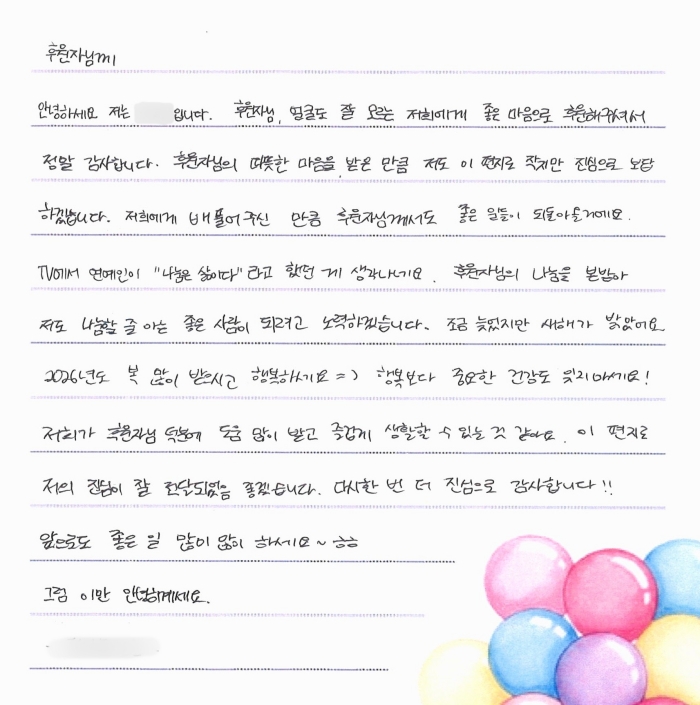 후원자님께
안녕하세요 저는 입니다. 후원자님, 얼굴도 잘 모르는 저희에게 좋은 마음으로 후원해주셔서
정말 감사합니다. 후원자님의 따뜻한 마음을 받은 만큼 저도 이 편지로 작지만 진심으로 보답
하겠습니다. 저희에게 베풀어주신 만큼 후원자님께서도 좋은 일들이 되돌아올거에요.
TV에서 연예인이 "나눔은 삶이다" 라고 했던 게 생각나네요. 후원자님의 나눔을 본받아
저도 나눔할 줄 아는 좋은 사람이 되려고 노력하겠습니다. 조금 늦었지만 새해가 밝았어요
2026년도 복 많이 받으시고 행복하세요 =) 행복보다 중요한 건강도 잊지마세요!
저희가 후원자님 덕분에 도움 많이 받고 즐겁게 생활할 수 있는 것 같아요. 이 편지로
저의 진심이 잘 전달되었음 좋겠습니다. 다시한 번 더 진심으로 감사합니다!!
앞으로도 좋은 일 많이 많이 하세요~ ㅎㅎ
그럼 이만 안녕히계세요.